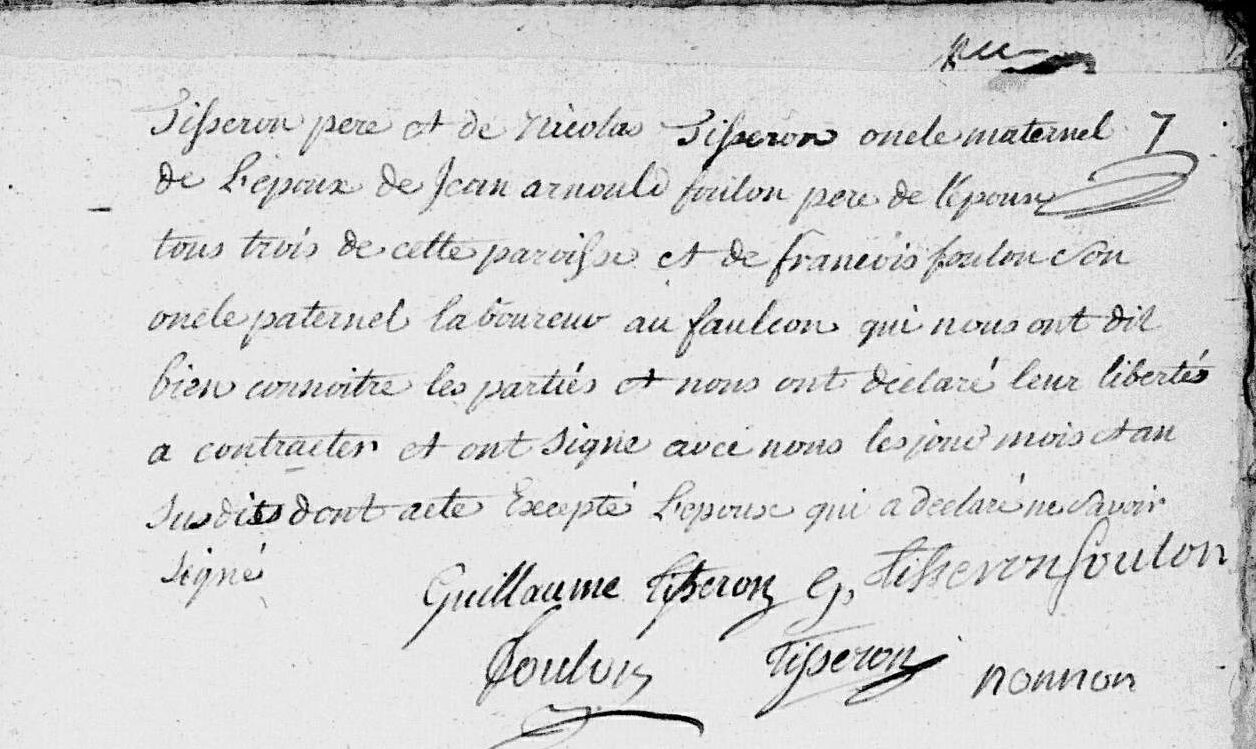 Tisseron pere et de Nicolas Tisseron oncle maternel 7
de L'epoux de Jean arnould foulon pere de l'epouse
tous trois de cette paroisse et de francois foulon son
oncle paternel laboureur au faulcon qui nous ont dit
bien connoitre les partiés et nous ont déclaré leur libertés
a contracter et ont signe avec nous les jour mois et an
susdits dont acte Excepté L'epoux qui a declaré ne savoir
signé
Guillaume tisseron G, tisseron foulon
foulon Tisseron nonnon